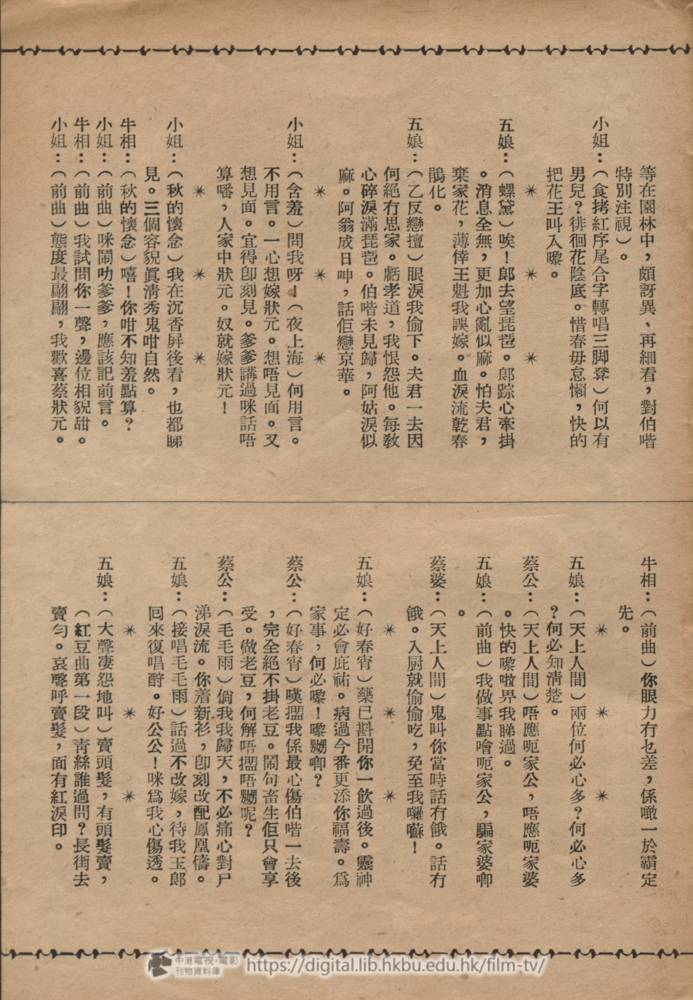 等在園林中，頗訝異、再細看，對伯喈
特別注視）。
小姐：（食拷紅序尾合字轉唱三脚凳）何以有
男兒？徘徊花陰底。惜春毋怠懶，快的
把花王叫入嚟。
＊　＊　＊
五娘：（螺黛）唉！郎去望琵琶。郎踪心牽掛
。消息全無，更加心亂似麻。怕夫君，
棄家花，薄倖王魁我誤嫁。血淚流乾春
鵑化。
五娘：（乙反戀檀）眼淚我偷下。夫君一去因
何絕冇思家。虧孝道，我恨怨他。每敎
心碎淚滿琵琶。伯喈未見歸，阿姑淚似
麻。阿翁成日呻，話佢戀京華。
＊　＊　＊
小姐：（含羞）問我呀！（夜上海）何用言。
不用言。一心想嫁狀元。想唔見面。又
想見面。宜得卽刻見。爹爹講過咪話唔
算噃，人家中狀元。奴就嫁狀元！
＊　＊　＊
小姐：（秋的懷念）我在沉香屏後看，也都睇
見。三個容貌眞清秀鬼咁自然。
牛相：（秋的懷念）嘻！你咁不知羞點算？
小姐：（前曲）咪鬧叻爹爹，應該記前言。
牛相：（前曲）我試問你一聲，邊位相貌甜。
小姐：（前曲）態度最翩翩，我歡喜蔡狀元。
牛相：（前曲）你眼力冇乜差，係噉一於霸定
先。
＊　＊　＊
五娘：（天上人間）兩位何必心多？何必心多
？何必知淸楚。
蔡公：（天上人間）唔應呃家公，唔應呃家婆
。快的嚟啦畀我睇過。
五娘：（前曲）我做事點會呃家公，騙家婆啷
。
蔡婆：（天上人間）鬼叫你當時話冇餓。話冇
餓。入厨就偷偷吃，免至我囉囌！
＊　＊　＊
五娘：（好春宵）藥已斟開你一飮過後。靈神
定必會庇祐。病過今番更添你福壽。爲
家事，何必嚟！嚟嬲啷？
蔡公：（好春宵）嘆㗎我係最心傷伯喈一去後
，完全絕不掛老豆。鬧句畜生佢只會享
受。做老豆，何解唔㗎唔嬲呢？
蔡公：（毛毛雨）倘我我歸天，不必痛心對尸
涕淚流。你着新衫，卽刻改配鳳凰儔。
五娘：（接唱毛毛雨）話過不改嫁，待我玉郎
回來復唱酹。好公公！咪爲我心傷透。
＊　＊　＊
五娘：（大聲凄怨地叫）賣頭髮，有頭髮賣，
（紅豆曲第一段）靑絲誰過問？長街去
賣勻。哀聲呼賣髮，面有紅淚印。
中港電視・電影
刊物資料庫
https://digital.lib.hkbu.edu.hk/film-tv/